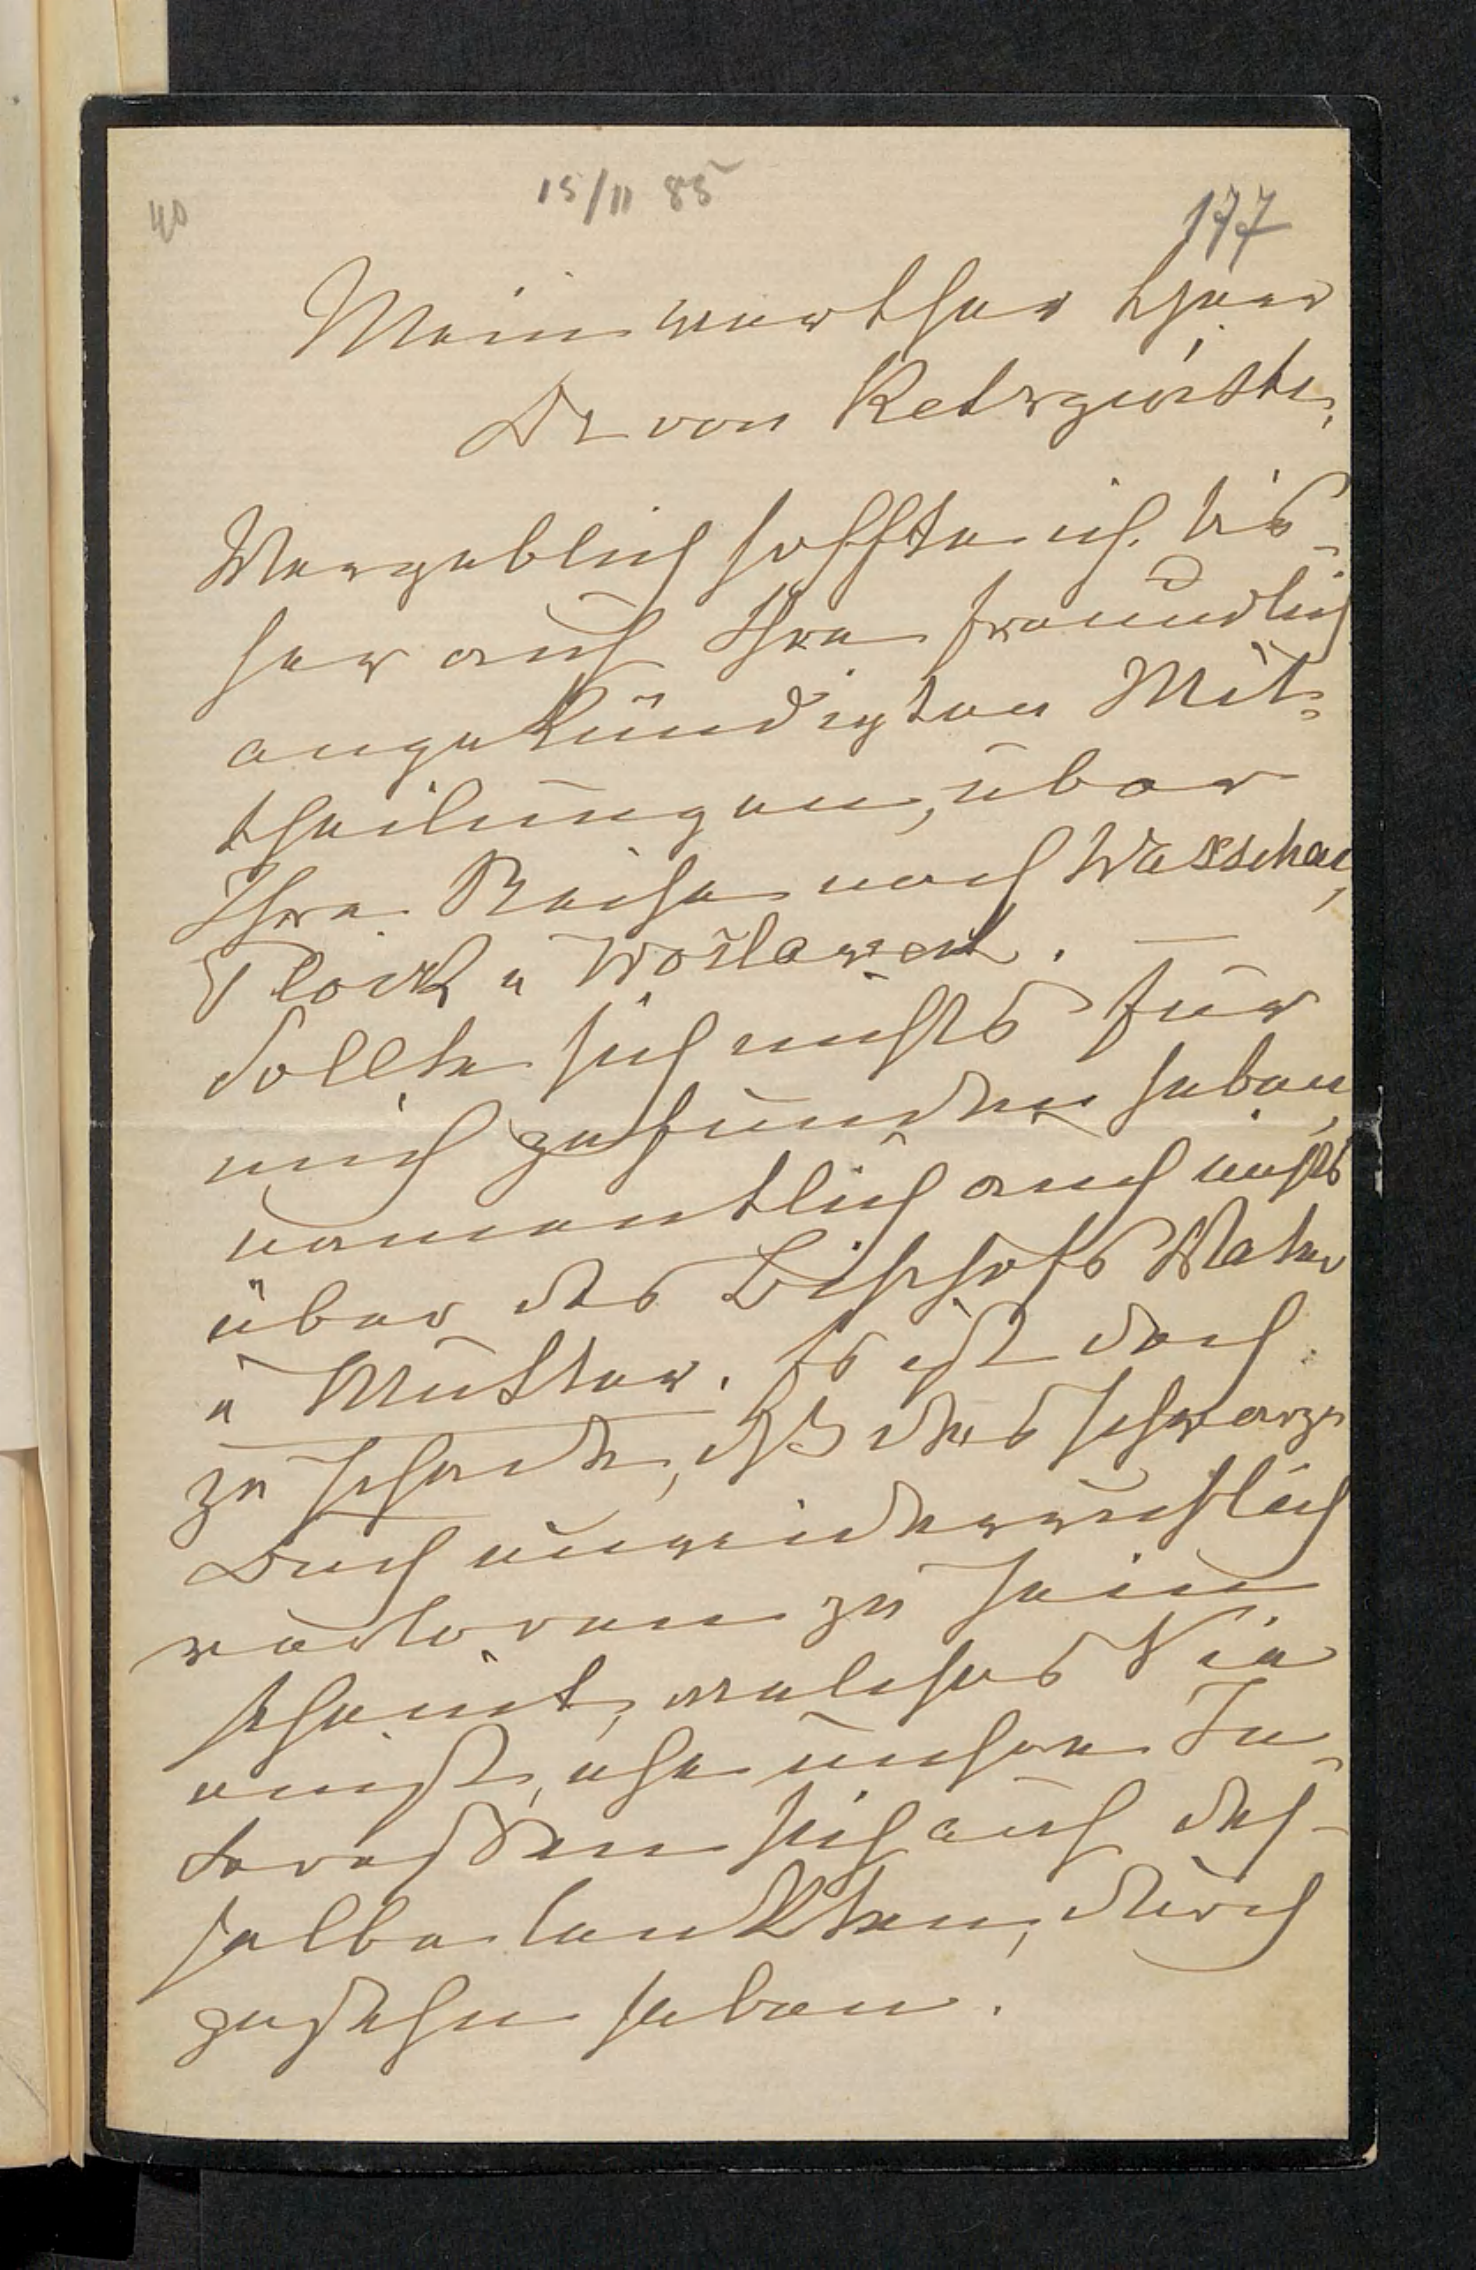 40
15/11 85
177
Mein werther Herr
Dr von Ketrzynski,
Vergeblich hoffte ich bis-
her auf Ihre freundlich
angekündigten Mit-
theilungen, über
Ihre Reise nach Warschau,
Plock u Wozlaweck. —
Sollte sich nichts für
mich gefunden haben,
namentlich auch nichts
über des Bischofs Vater
u Mutter. Es ist doch
zu schade, dß das schwarze
Buch unwiderruflich
verloren zu sein
scheint, welches Sie
einst, ehe unsere In-
teressen sich auf das-
selbe lenkten, durch
gesehen haben.